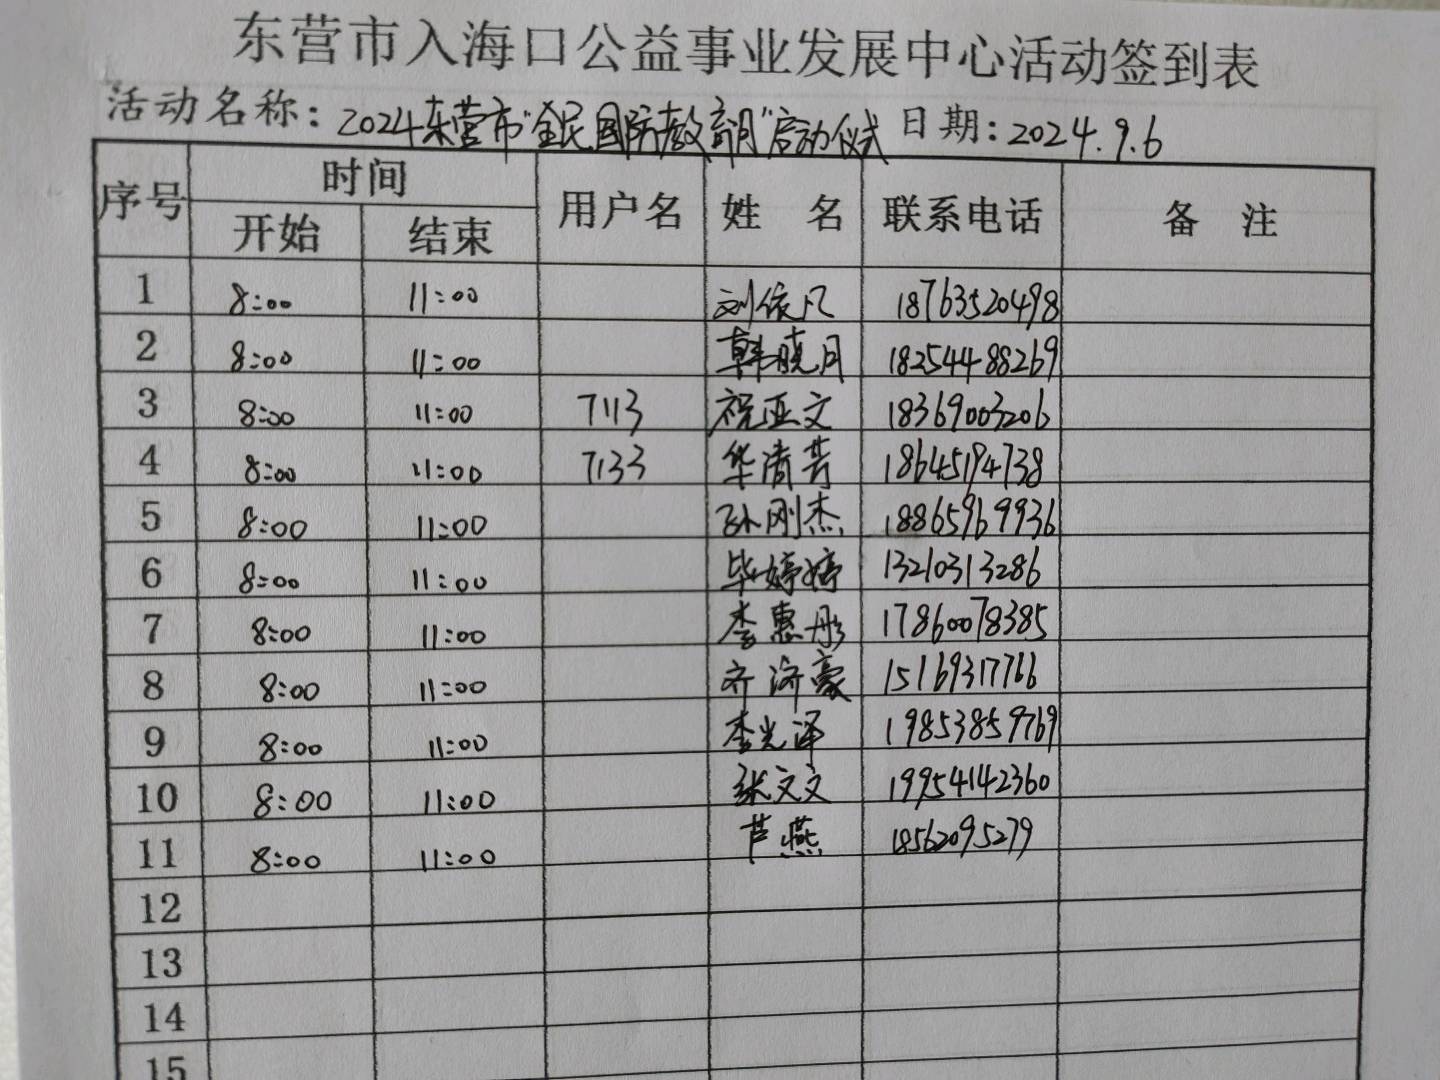 东营市入海口公益事业发展中心活动签到表
活动名称：2024东营市“全民国防教育月”启动仪式 日期：2024.9.6
序号 时间 用户名 姓 名 联系电话 备 注
开始 结束
1 8:00 11:00 刘俊凡 18763520498
2 8:00 11:00 韩晓月 18254488269
3 8:00 11:00 7113 祝亚文 18369003206
4 8:00 11:00 7133 华清芳 18645194738
5 8:00 11:00 孙刚杰 18865969936
6 8:00 11:00 毕婷婷 13210313286
7 8:00 11:00 李惠彤 17860078385
8 8:00 11:00 齐济豪 15169317766
9 8:00 11:00 李光泽 19853859769
10 8:00 11:00 张文文 19954142360
11 8:00 11:00 芦燕 18562095279
12
13
14
15